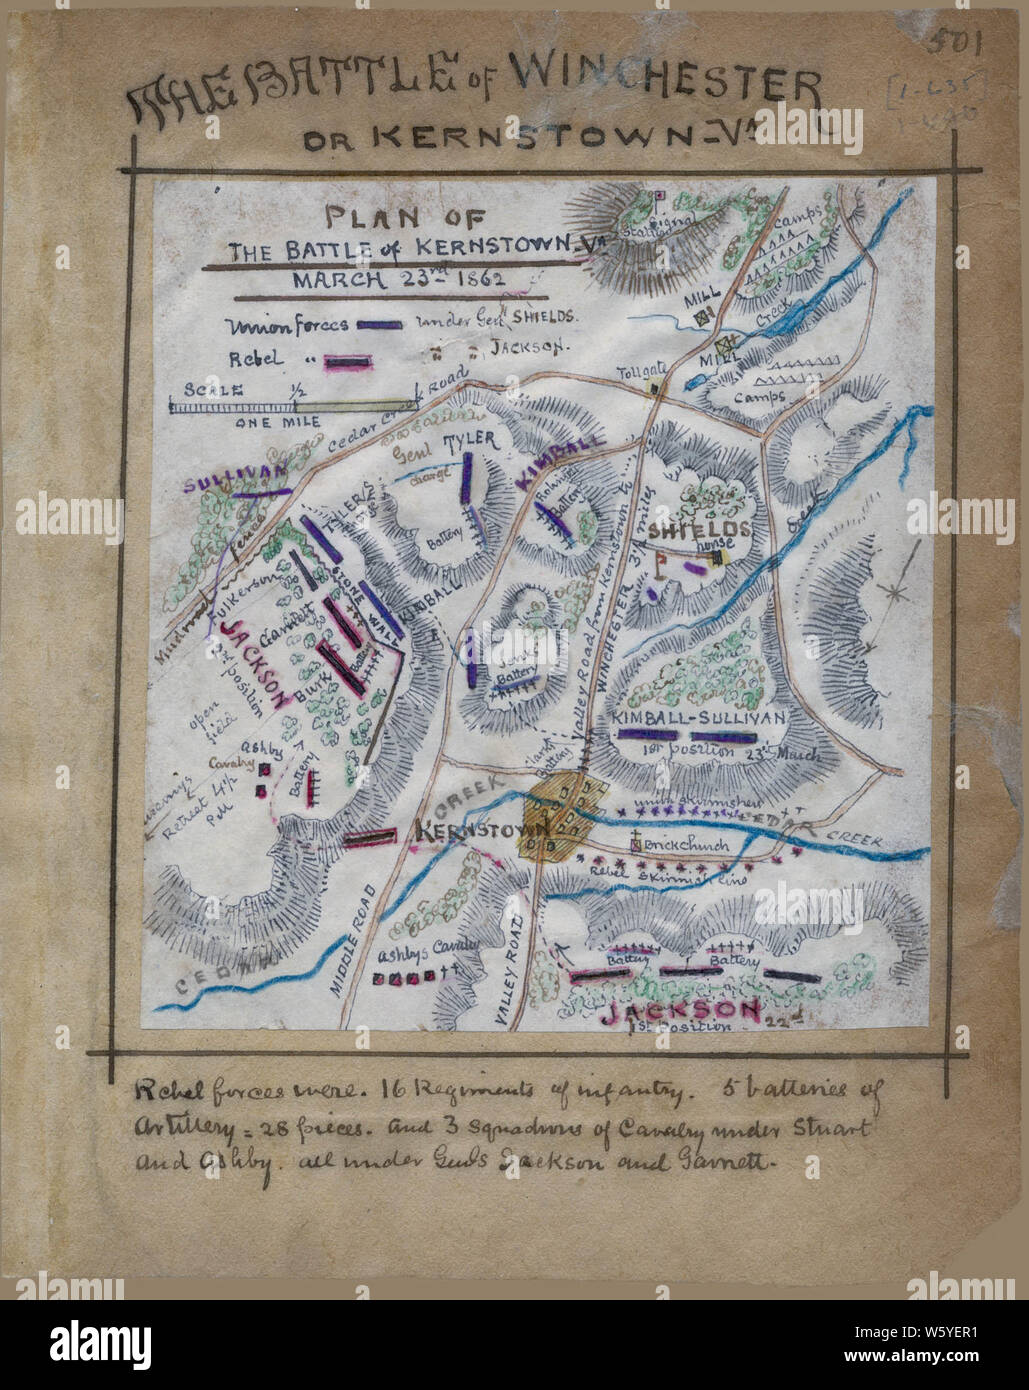 501
THE BATTLE of WINCHESTER
OR KERNSTOWN-Va
PLAN OF
THE BATTLE of KERNSTOWN-Va
MARCH 23rd 1862
Union Forces under Genl SHIELDS.
Rebel " " " JACKSON.
SCALE 1/2
ONE MILE
Signal Station
Camps
MILL
Creek
MILL
Tollgate
Camps
Cedar Creek Road
Genl TYLER
charge
KIMBALL
SULLIVAN
Battery
Battery
TYLER'S
SHIELDS
house
Mud road
fence
STONE WALL
KIMBALL
Fulkerson
Garnett
JACKSON
2d position
Burk
Battery
open field
Jenks Battery
Valley Road from Kernstown to WINCHESTER 3 1/2 miles
KIMBALL-SULLIVAN
1st position 23rd March
Ashby
Cavalry
Battery
Clarks Battery
Retreat 4 1/2 PM
CREEK
KERNSTOWN
Union Skirmishers
CEDAR CREEK
Brick Church
Rebel Skirmish Line
MIDDLE ROAD
VALLEY ROAD
Ashbys Cavalry
CEDAR
Battery
Battery
JACKSON
1st Position 22d
Rebel forces were. 16 Regiments of infantry. 5 batteries of
Artillery = 28 pieces. and 3 Squadrons of Cavalry under Stuart
and Ashby. all under Genls Jackson and Garnett.
alamy
alamy
Image ID: W5YER1
www.alamy.com